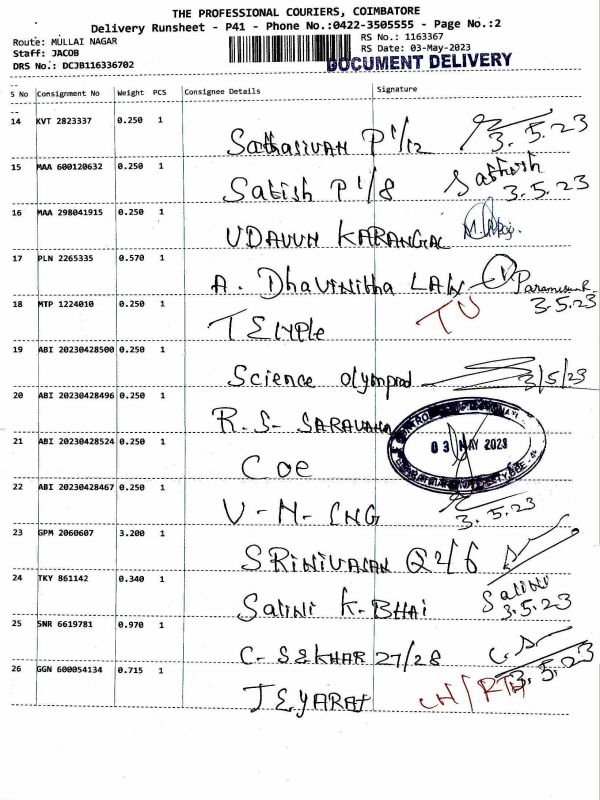 THE PROFESSIONAL COURIERS, COIMBATORE
Delivery Runsheet - P41 - Phone No.:0422-3505555 - Page No.:2
Route: MULLAI NAGAR
RS No.: 1163367
Staff: JACOB
RS Date: 03-May-2023
DRS No.: DCJB116336702
DOCUMENT DELIVERY
S No Consignment No Weight PCS Consignee Details Signature
14 KVT 2823337 0.250 1
Sathasivam P1/12 3.5.23
15 MAA 600120632 0.250 1
Satish P1/8 Sathish 3.5.23
16 MAA 298041915 0.250 1
UDAVUM KARANGAL
17 PLN 2265335 0.570 1
A. Dhavinitha LAW 3.5.23
18 MTP 1224010 0.250 1
TEMPle
19 ABI 20230428500 0.250 1
Science Olympiad 3/5/23
20 ABI 20230428496 0.250 1
R.S. SARAVANA
21 ABI 20230428524 0.250 1
COE 03 MAY 2023
22 ABI 20230428467 0.250 1
V-N-CNG 3.5.23
23 GPM 2060607 3.200 1
SRINIVASAN Q2/6
24 TKY 861142 0.340 1
Salini K-BHAI Salini 3.5.23
25 SNR 6619781 0.970 1
C-SEKHAR 27/28 C.S 3.5.23
26 GGN 600054134 0.715 1
JEYARAJ